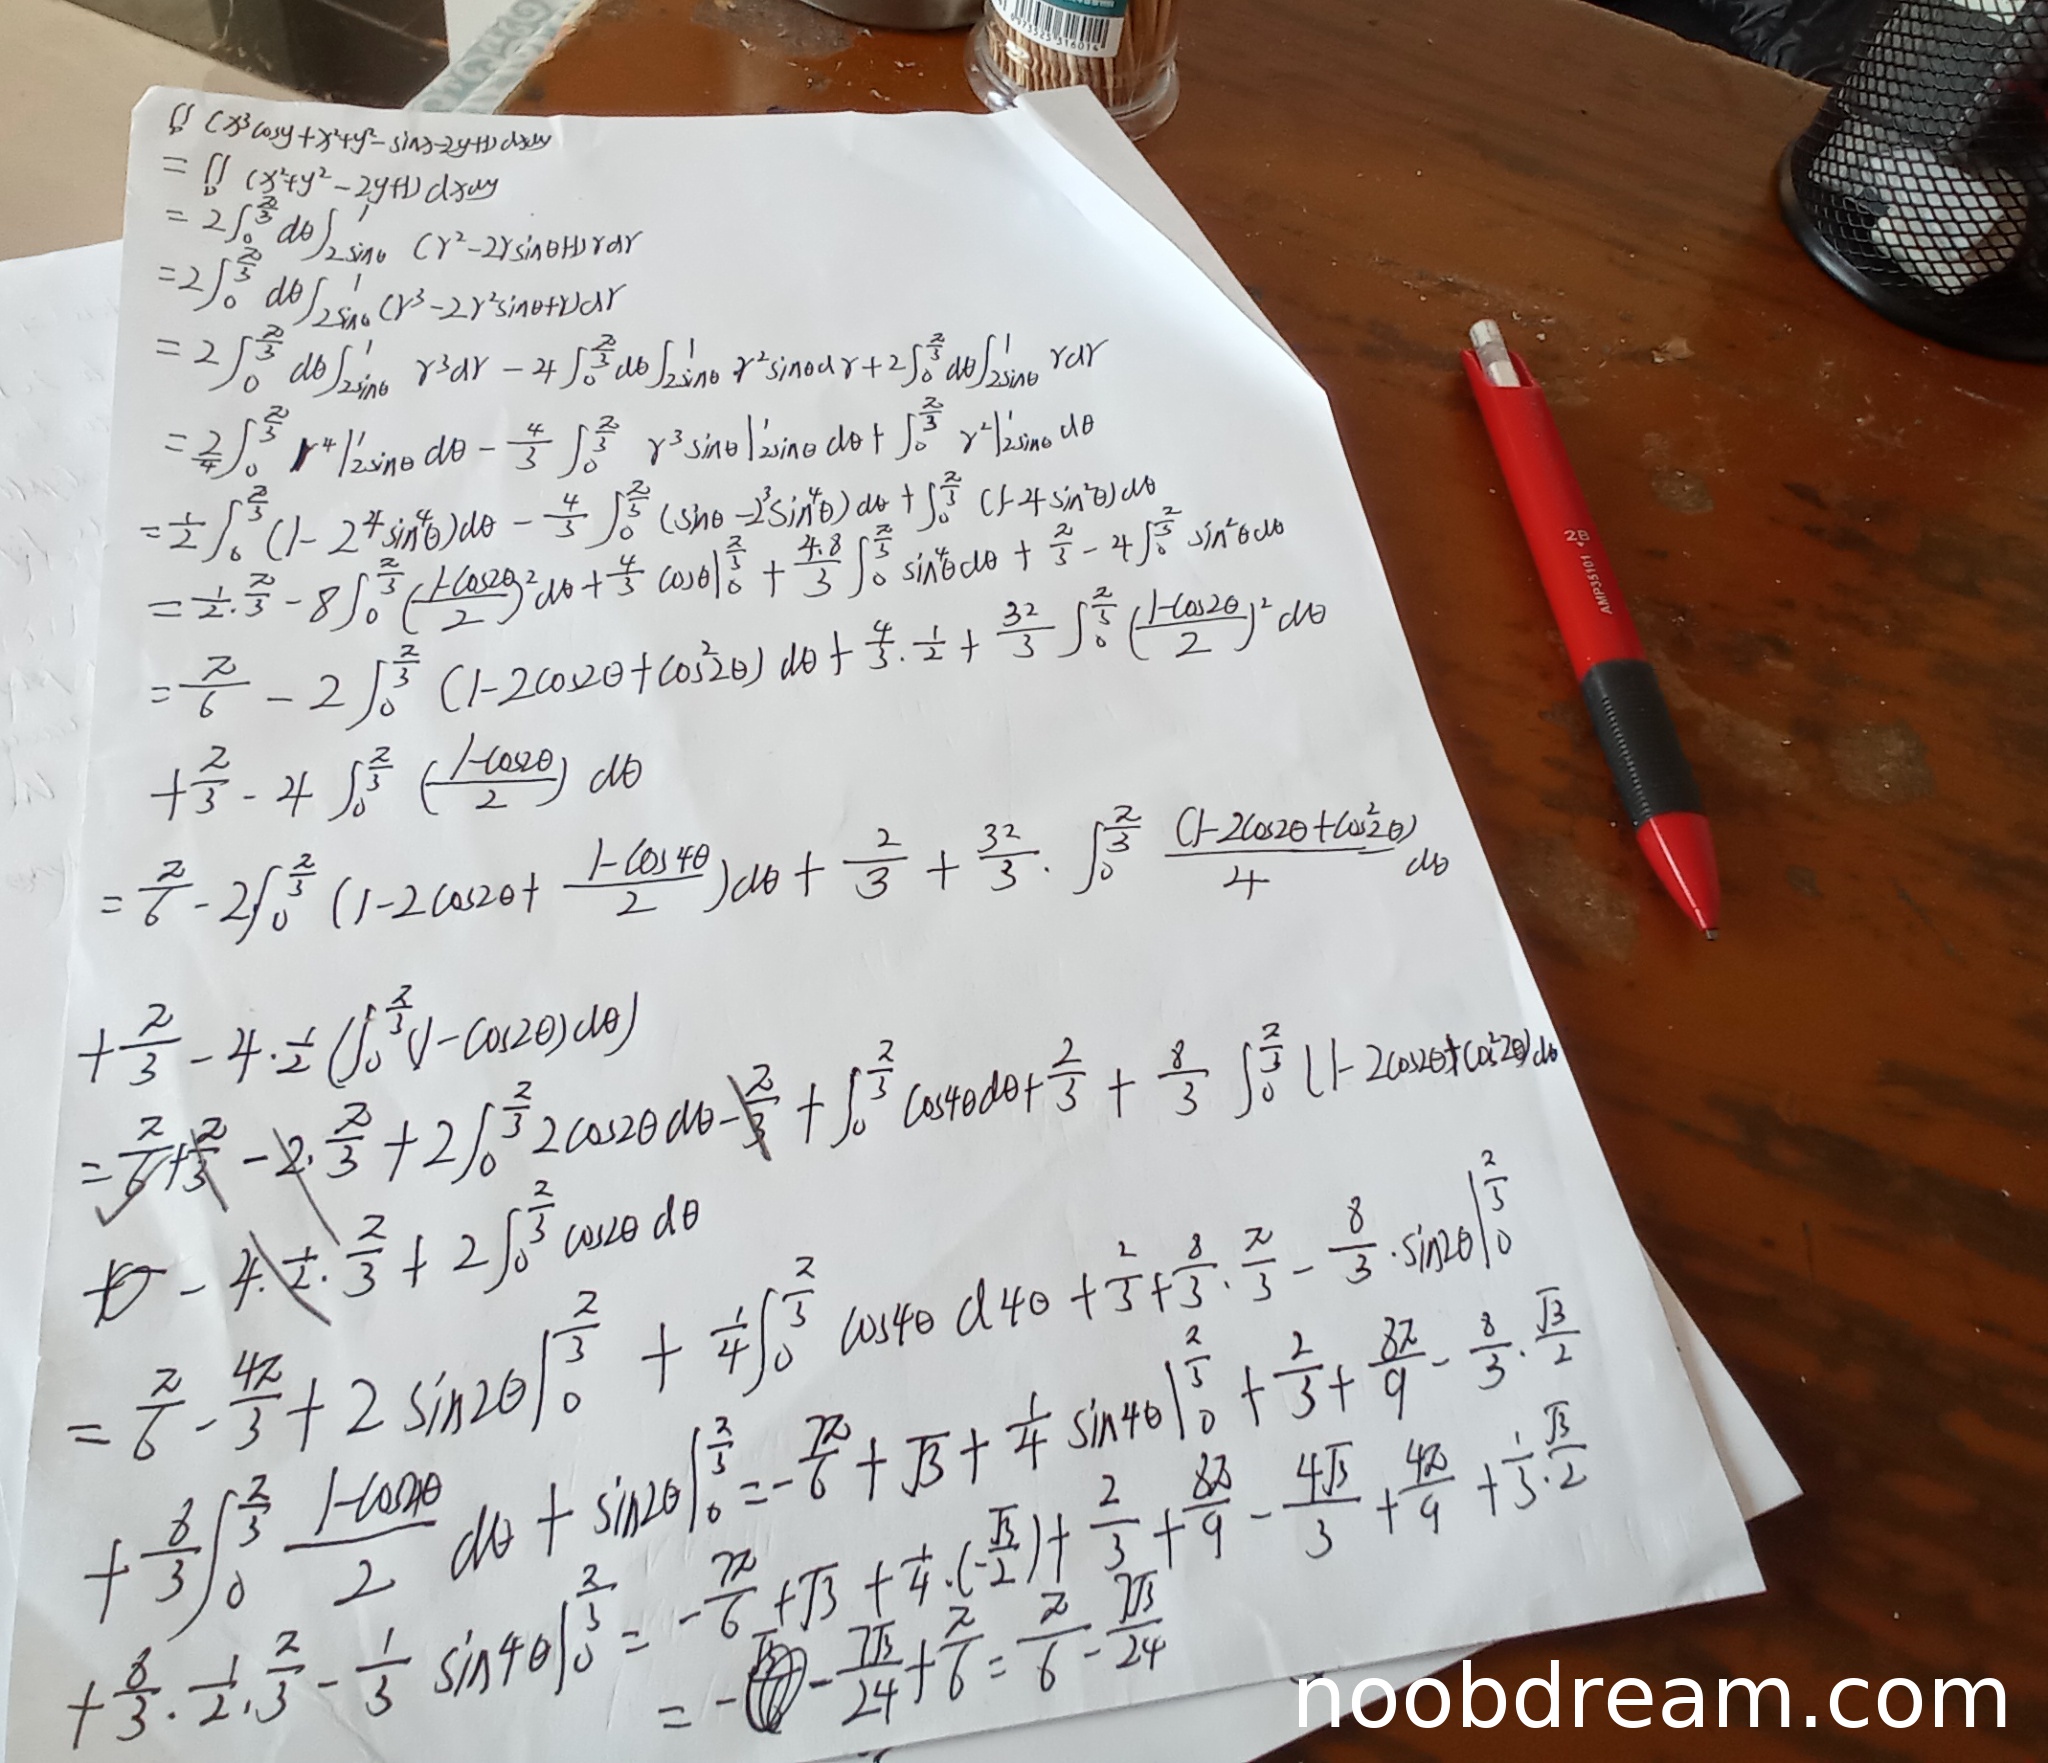 9773525316014
∬_D (x³cosy+x²+y²-sinx-2y+1)dxdy
= ∬_D (x²+y²-2y+1)dxdy
= 2∫_0^{π/3} dθ∫_{2sinθ}^1 (r²-2rsinθ+1)rdr
=2∫_0^{π/3} dθ∫_{2sinθ}^1 (r³-2r²sinθ+r)dr
= 2∫_0^{π/3} dθ∫_{2sinθ}^1 r³dr - 4∫_0^{π/3}dθ∫_{2sinθ}^1 r²sinθdr+2∫_0^{π/3}dθ∫_{2sinθ}^1 rdr
= 2/4∫_0^{π/3} r⁴|_{2sinθ}^1 dθ - 4/3 ∫_0^{π/3} r³sinθ|_{2sinθ}^1 dθ+ ∫_0^{π/3} r²|_{2sinθ}^1 dθ
=1/2∫_0^{π/3}(1-2⁴sin⁴θ)dθ - 4/3∫_0^{π/3}(sinθ-2³sin⁴θ)dθ+∫_0^{π/3}(1-4sin²θ)dθ
=1/2·π/3-8∫_0^{π/3}((1-cos2θ)/2)²dθ+4/3 cosθ|_0^{π/3}+4·8/3∫_0^{π/3}sin⁴θdθ+π/3-4∫_0^{π/3}sin²θdθ
=π/6-2∫_0^{π/3}(1-2cos2θ+cos²2θ)dθ+4/3·1/2+32/3∫_0^{π/3}((1-cos2θ)/2)²dθ
+π/3-4∫_0^{π/3}((1-cos2θ)/2)dθ
=π/6-2∫_0^{π/3}(1-2cos2θ+(1-cos4θ)/2)dθ+2/3+32/3·∫_0^{π/3}(1-2cos2θ+cos²2θ)/4 dθ
+π/3-4·1/2(∫_0^{π/3}(1-cos2θ)dθ)
=π/6+π/3-2·π/3+2∫_0^{π/3}2cos2θdθ-π/3+∫_0^{π/3}cos4θdθ+2/3+8/3∫_0^{π/3}(1-2cos2θ+cos²2θ)dθ
-4·1/2·π/3+2∫_0^{π/3}cos2θdθ
=π/6-4π/3+2sin2θ|_0^{π/3}+1/4∫_0^{π/3}cos4θd4θ+2/3+8/3·π/3-8/3·sin2θ|_0^{π/3}
+8/3∫_0^{π/3}(1-cos4θ)/2 dθ+sin2θ|_0^{π/3}=-7π/6+√3+1/4sin4θ|_0^{π/3}+2/3+8π/9-8/3·√3/2
+8/3·1/2·π/3-1/3sin4θ|_0^{π/3}=-7π/6+√3+1/4·(-√3/2)+2/3+8π/9-4√3/3+4π/9+1/3·√3/2
=-7√3/24+π/6=π/6-7√3/24
2B
AMP35101
noobdream.com